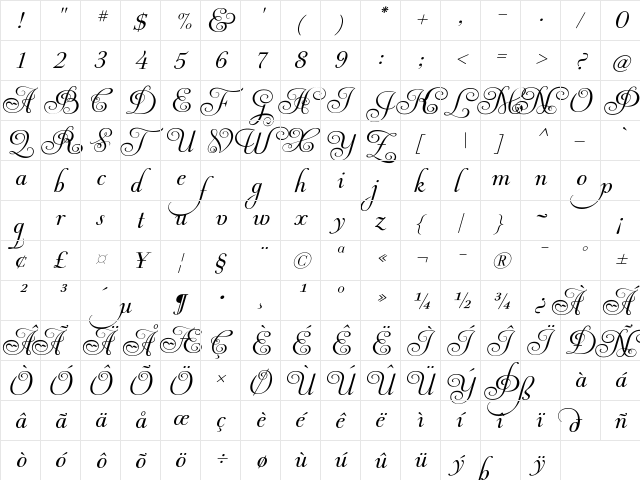 ! " # $ % & ' ( ) * + , - . / 0
1 2 3 4 5 6 7 8 9 : ; < = > ? @
A B C D E F G H I J K L M N O P
Q R S T U V W X Y Z [ | ] ^ _ `
a b c d e f g h i j k l m n o p
q r s t u v w x y z { | } ~ ¡
¢ £ ¤ ¥ ¦ § ¨ © ª « ¬ - ® ¯ ° ±
² ³ ´ µ ¶ · ¸ ¹ º » ¼ ½ ¾ ¿ À Á
Â Ã Ä Å Æ Ç È É Ê Ë Ì Í Î Ï Ð Ñ
Ò Ó Ô Õ Ö × Ø Ù Ú Û Ü Ý Þ ß à á
â ã ä å æ ç è é ê ë ì í î ï ð ñ
ò ó ô õ ö ÷ ø ù ú û ü ý þ ÿ